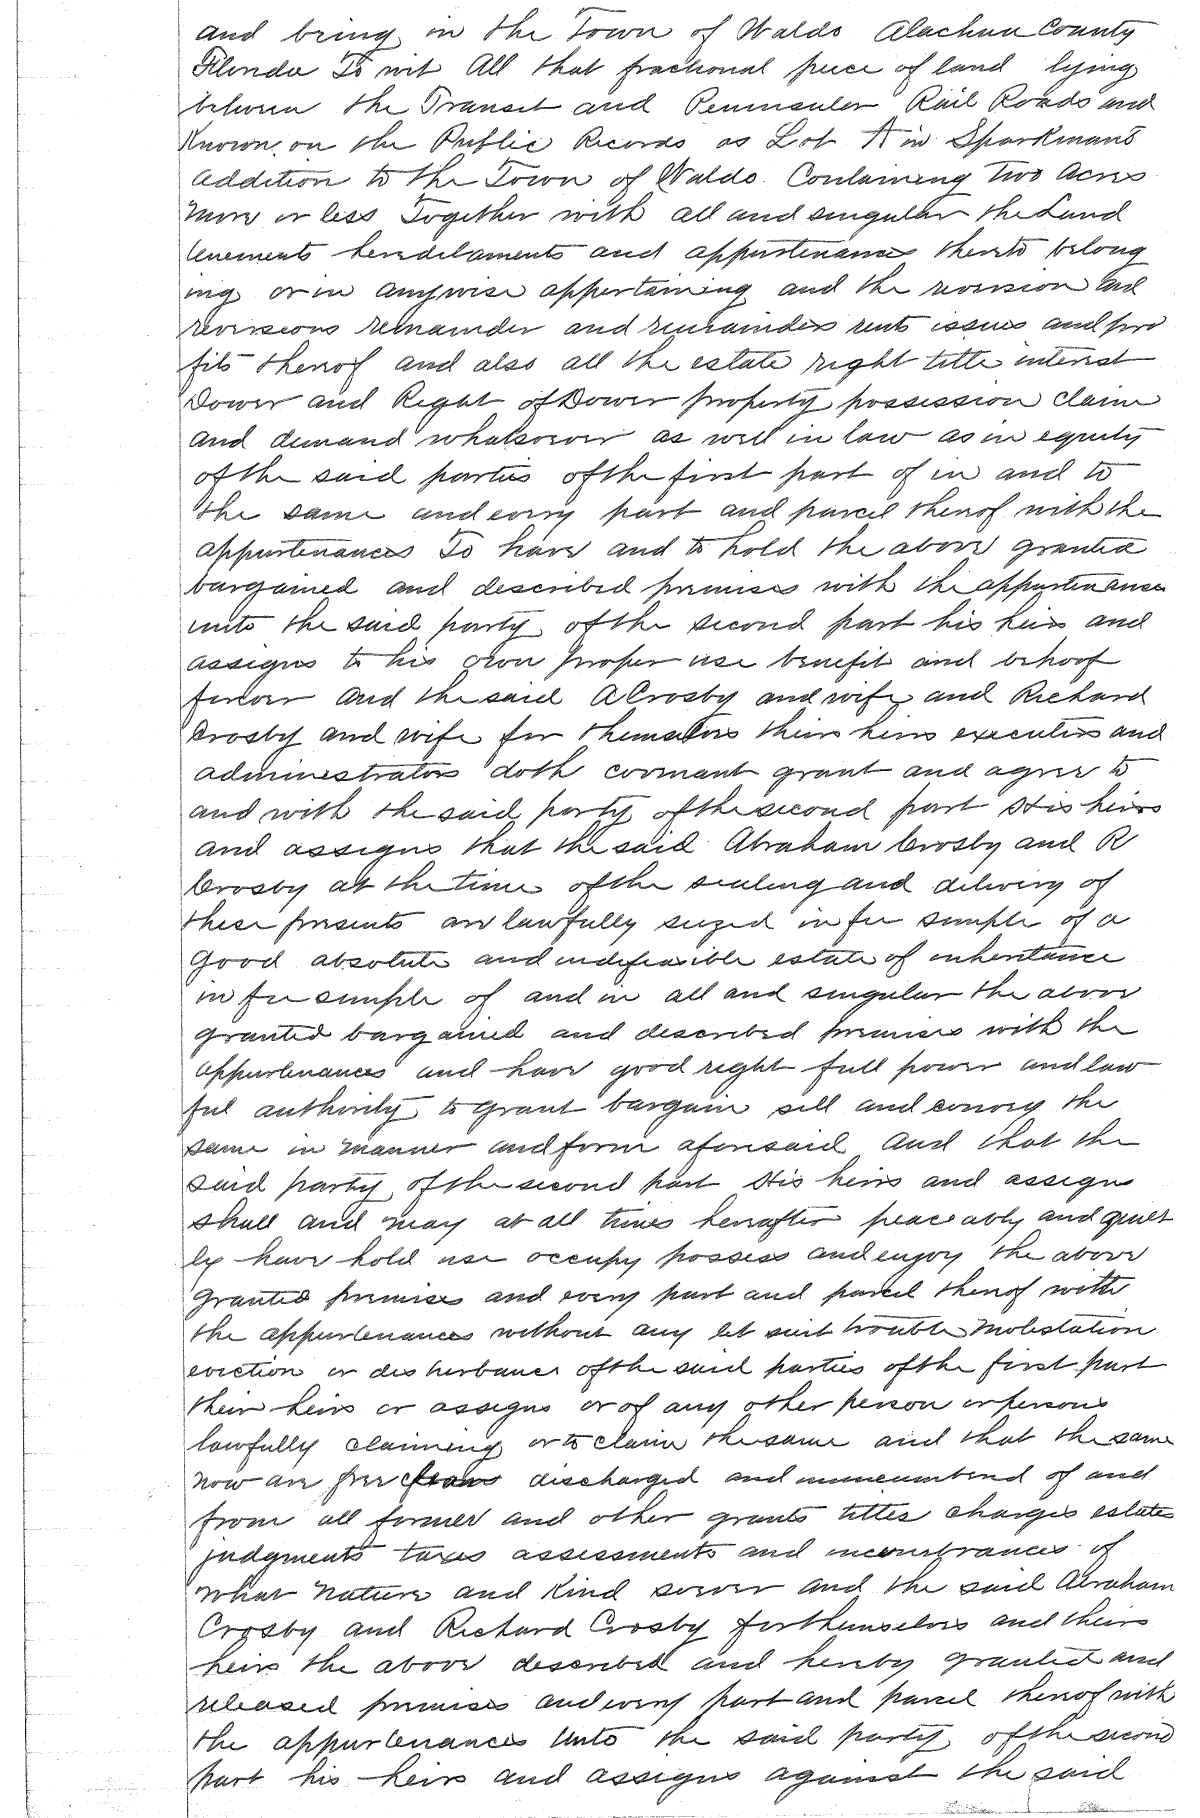 and being in the Town of Waldo Alachua County
Florida To wit All that fractional piece of land lying
between the Transit and Peninsular Rail Roads and
Known on the Public Records as Lot A in Sparkmans
addition to the Town of Waldo. Containing Two Acres
more or less Together with all and singular the Land
tenements heredilaments and appurtenances thereto belong
ing or in anywise appertaining and the reversion and
reversions remainder and remainders rents issues and pro
fits thereof and also all the estate right title interest
Dower and Right of Dower property possession claim
and demand whatsoever as well in law as in equity
of the said parties of the first part of in and to
the same and every part and parcel thereof with the
appurtenances To have and to hold the above granted
bargained and described premises with the appurtenances
unto the said party of the second part his heirs and
assigns to his own proper use benefit and behoof
forever And the said A Crosby and wife and Richard
Crosby and wife for themselves their heirs executors and
administrators doth covenant grant and agree to
and with the said party of the second part His heirs
and assigns that the said Abraham Crosby and R
Crosby at the time of the sealing and delivery of
these presents are lawfully seized in fee simple of a
Good absolute and indefeasible estate of inheritance
in fee simple of and in all and singular the above
granted bargained and described premises with the
appurtenances and have good right full power and law
ful authority to grant bargain sell and convey the
same in manner and form aforesaid And that the
said party of the second part His heirs and assigns
shall and may at all times hereafter peaceably and quiet
ly have hold use occupy possess and enjoy the above
Granted premises and every part and parcel thereof with
the appurtenances without any let suit trouble molestation
eviction or disturbance of the said parties of the first part
their heirs or assigns or of any other person or persons
lawfully claiming or to claim the same and that the same
now are free discharged and unincumbered of and
from all former and other grants titles charges estates
judgments taxes assessments and incumbrances of
what nature and kind soever And the said Abraham
Crosby and Richard Crosby for themselves and their
heirs the above described and hereby granted and
released premises and every part and parcel thereof with
the appurtenances Unto the said party of the second
part his heirs and assigns against the said